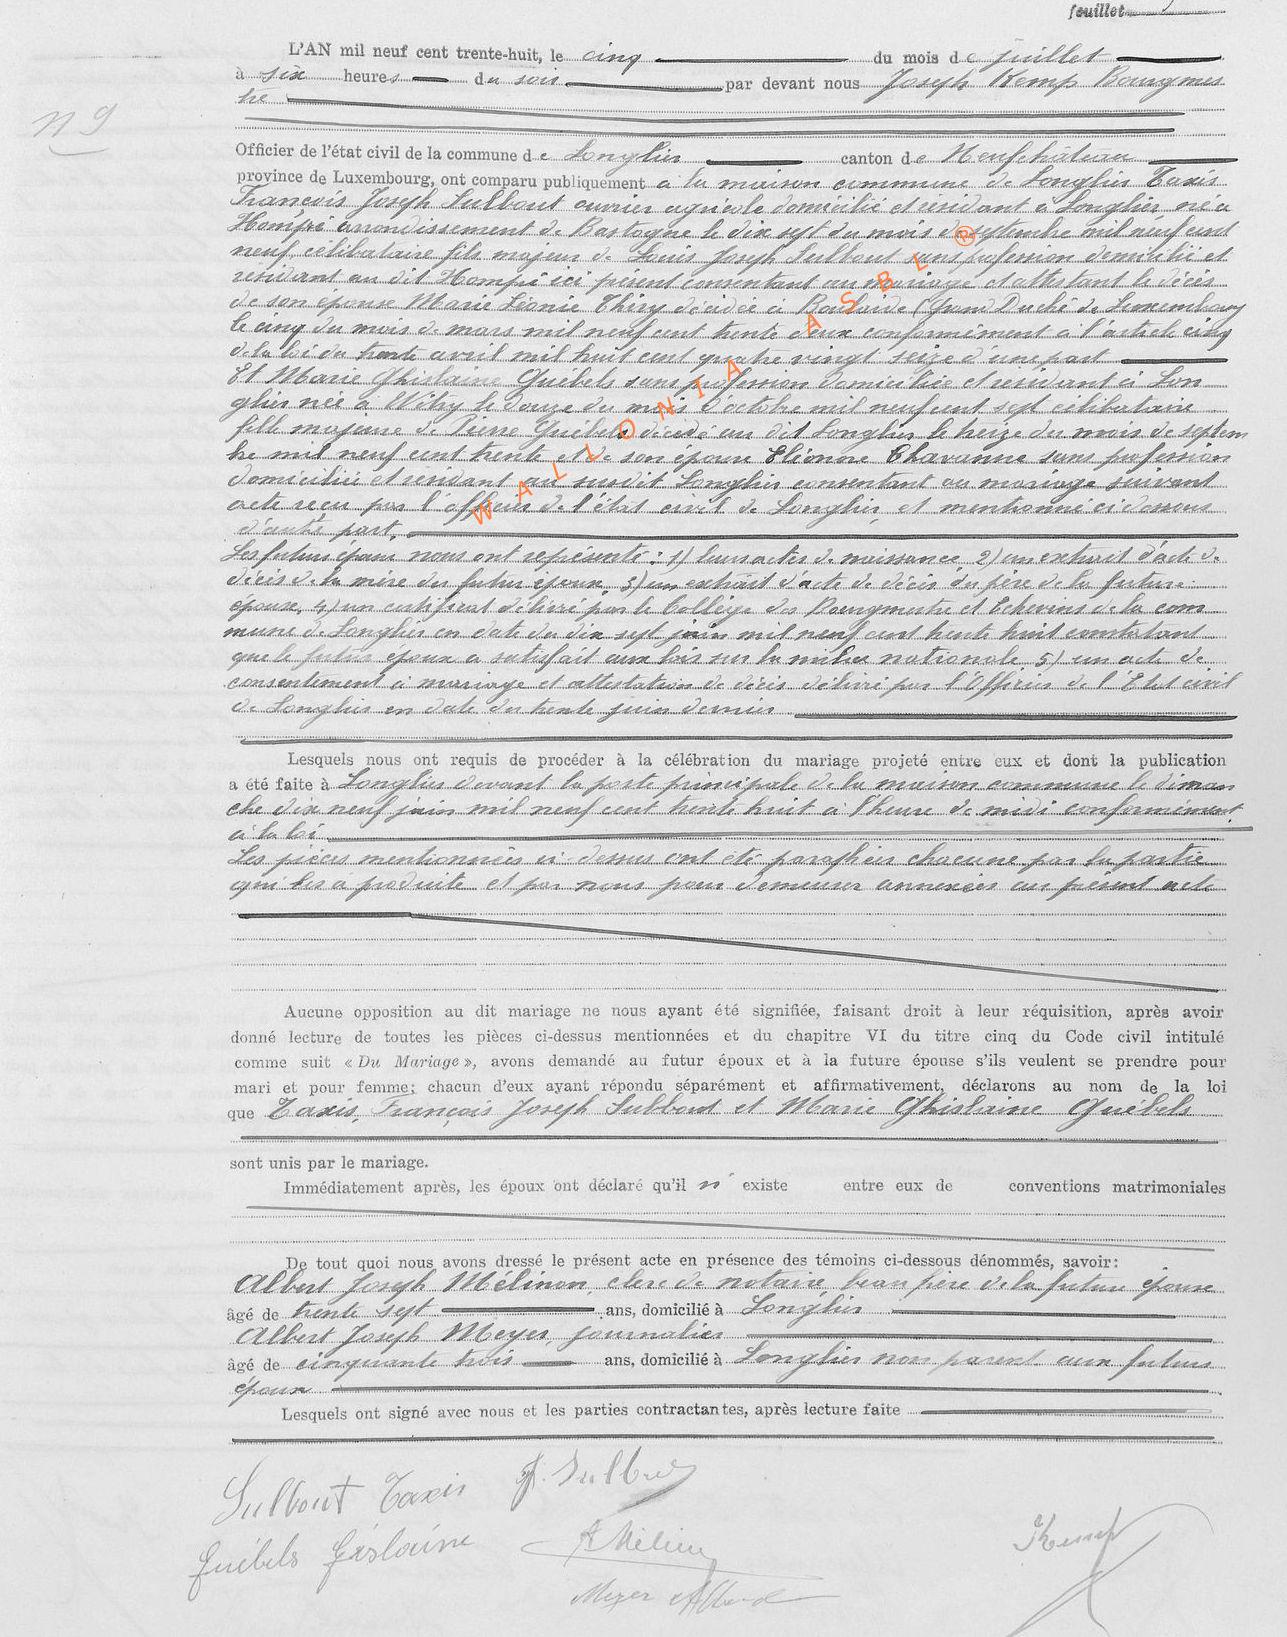 feuillet
L'AN mil neuf cent trente-huit, le cinq du mois de juillet
à six heures du soir par devant nous Joseph Kemp Bourgmes
tre
N 9
Officier de l'état civil de la commune de Longlier canton de Neufchâteau
province de Luxembourg, ont comparu publiquement à la maison commune de Longlier Taxis
François Joseph Sulbout ouvrier agricole domicilié et résidant à Longlier né à
Hompré arrondissement de Bastogne le dix sept du mois de septembre mil neuf cent
neuf, célibataire fils majeur de Louis Joseph Sulbout sans profession domicilié et
résidant au dit Hompré ici présent consentant au mariage et attestant le décès
de son épouse Marie Léonie Thiry décédée à Boulaide (Grand Duché de Luxembourg
le cinq du mois de mars mil neuf cent trente deux conformément à l'article cinq
de la loi du trente avril mil huit cent quatre vingt seize d'une part
Et Marie Ghislaine Guébels sans profession domiciliée et résidant à Lon
glier née à Witry le douze du mois d'octobre mil neuf cent sept célibataire
fille majeure de Pierre Guébels décédé au dit Longlier le treize du mois de septem
bre mil neuf cent trente et de son épouse Eléonore Thavanne sans profession
domiciliée et résidant au susdit Longlier consentant au mariage suivant
acte reçu par l'officier de l'état civil de Longlier et mentionné ci dessus
d'autre part.
Les futurs époux nous ont représenté : 1) leurs actes de naissance 2) un extrait d'acte de
décès de la mère du futur époux, 3) un extrait d'acte de décès du père de la future
épouse, 4) un certificat délivré par le Collège des Bourgmestre et Echevins de la com
mune de Longlier en date du dix sept juin mil neuf cent trente huit constatant
que le futur époux a satisfait aux lois sur la milice nationale 5) un acte de
consentement à mariage et attestation de décès délivré par l'Officier de l'Etat civil
de Longlier en date du trente juin dernier
Lesquels nous ont requis de procéder à la célébration du mariage projeté entre eux et dont la publication
a été faite à Longlier devant la porte principale de la maison commune le diman
che dix neuf juin mil neuf cent trente huit à l'heure de midi conformément
à la loi
Les pièces mentionnées ci dessus ont été paraphées chacune par la partie
qui les a produite et par nous pour demeurer annexées au présent acte
Aucune opposition au dit mariage ne nous ayant été signifiée, faisant droit à leur réquisition, après avoir
donné lecture de toutes les pièces ci-dessus mentionnées et du chapitre VI du titre cinq du Code civil intitulé
comme suit « Du Mariage », avons demandé au futur époux et à la future épouse s'ils veulent se prendre pour
mari et pour femme; chacun d'eux ayant répondu séparément et affirmativement, déclarons au nom de la loi
que Taxis, François Joseph Sulbout et Marie Ghislaine Guébels
sont unis par le mariage.
Immédiatement après, les époux ont déclaré qu'il n' existe entre eux de conventions matrimoniales
De tout quoi nous avons dressé le présent acte en présence des témoins ci-dessous dénommés, savoir:
Albert Joseph Mélinon, clerc de notaire, beau frère de la future épouse
âgé de trente sept ans, domicilié à Longlier
Albert Joseph Meyer, journalier
âgé de cinquante trois ans, domicilié à Longlier non parent aux futurs
époux
Lesquels ont signé avec nous et les parties contractantes, après lecture faite
Sulbout Taxis J. Sulbout
Guébels Gislaine A Mélinon Kemp
Meyer Albert
WALLONIA ASBL ®